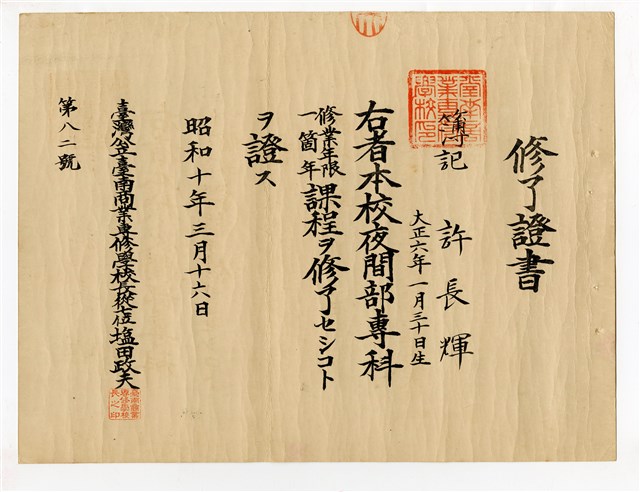 修了證書
許長輝
大正六年一月三十日生
簿記
右者本校夜間部專科
修業年限
一箇年
課程ヲ修了セシコト
ヲ證ス
昭和十年三月十六日
臺灣公立臺南商業專修學校長從七位塩田政夫
第八二號